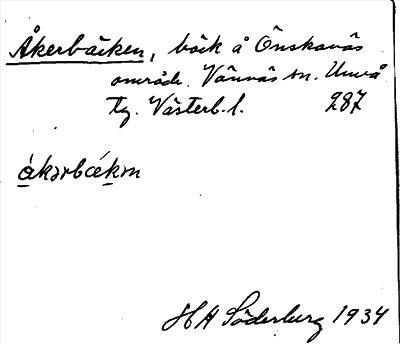 Åkerbäcken, bäck å Önskanäs
område. Vännäs sn. Umeå
tg. Västerb. l. 287
ákərbǽkm
HA Söderburg 1934